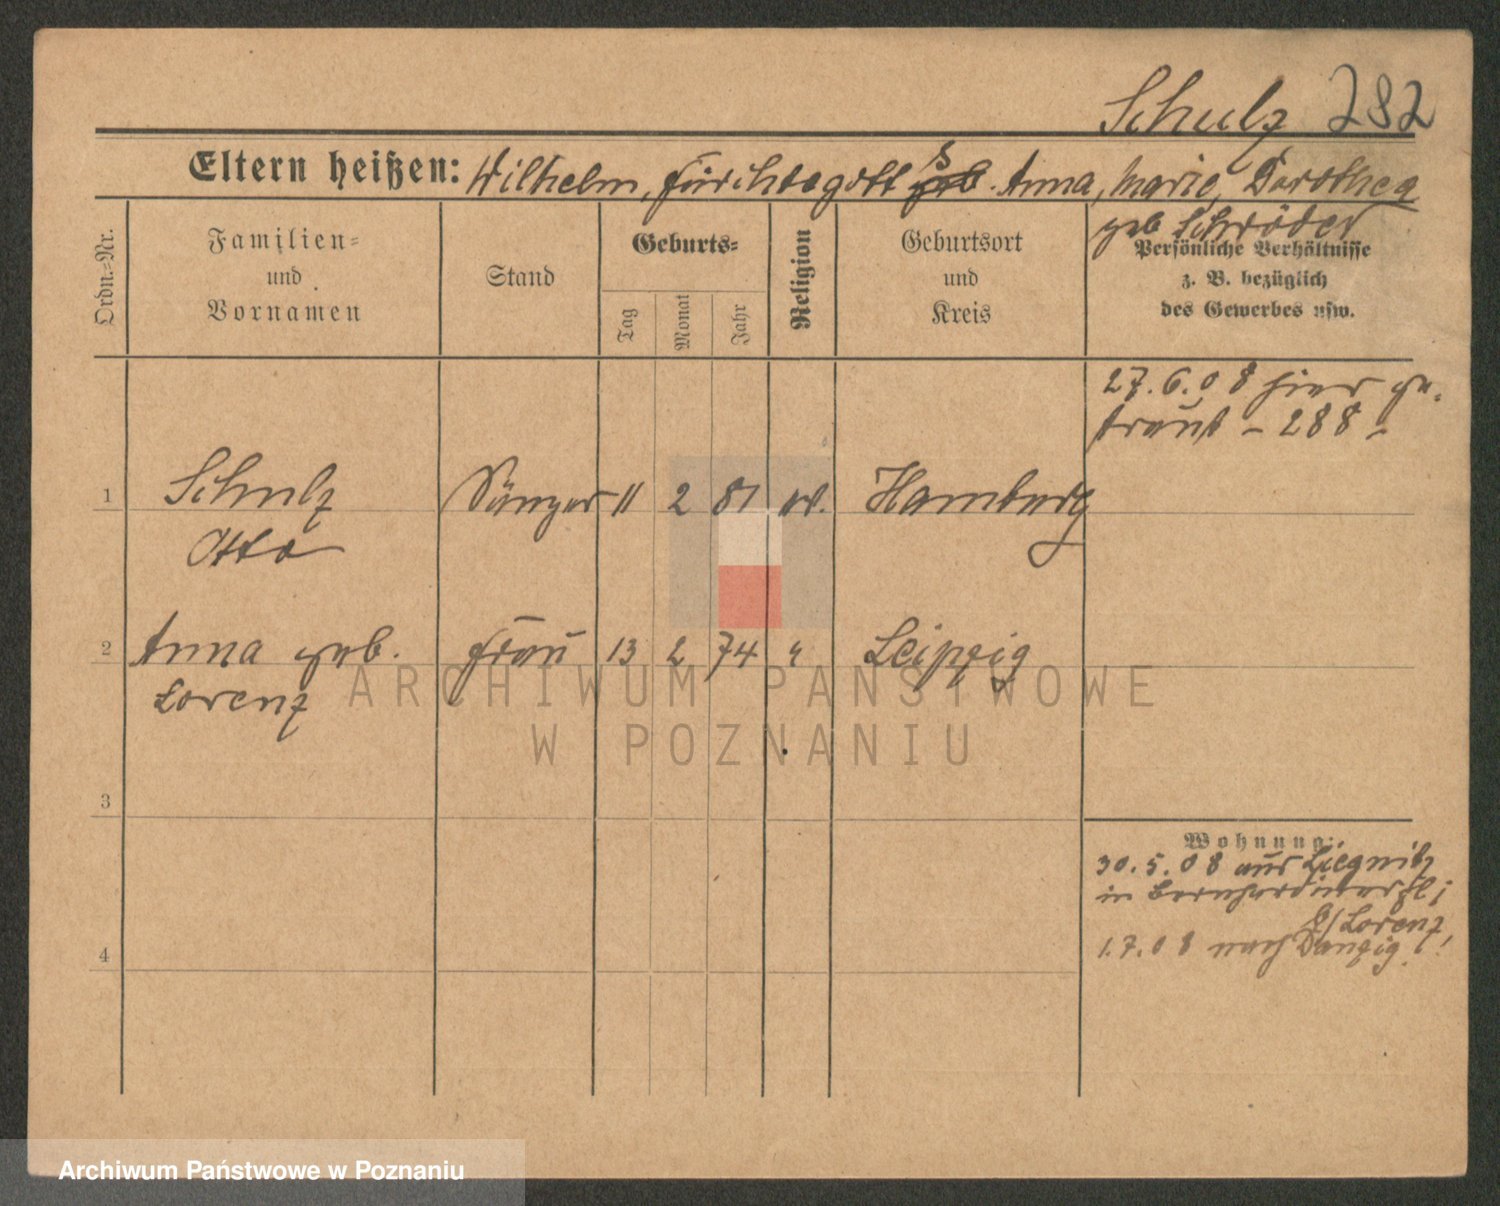 Schulz 282
Eltern heißen: Wilhelm, Fürchtegott S. Anna, Marie, Dorothea
geb Schröder
Ordn.-Nr.
Familien-
und
Vornamen
Stand
Geburts-
Tag
Monat
Jahr
Religion
Geburtsort
und
Kreis
Persönliche Verhältnisse
z. B. bezüglich
des Gewerbes usw.
27.6.08 hier ge-
traut - 288 -
1 Schulz Sänger 11 2 81 ev. Hamburg
Otto
2 Anna geb. Frau 13 2 74 " Leipzig
Lorenz
3
4
Wohnung:
30.5.08 aus Liegnitz
in Bernhardinerpl;
b/Lorenz,
1.7.08 nach Danzig.
ARCHIWUM PAŃSTWOWE
W POZNANIU
Archiwum Państwowe w Poznaniu